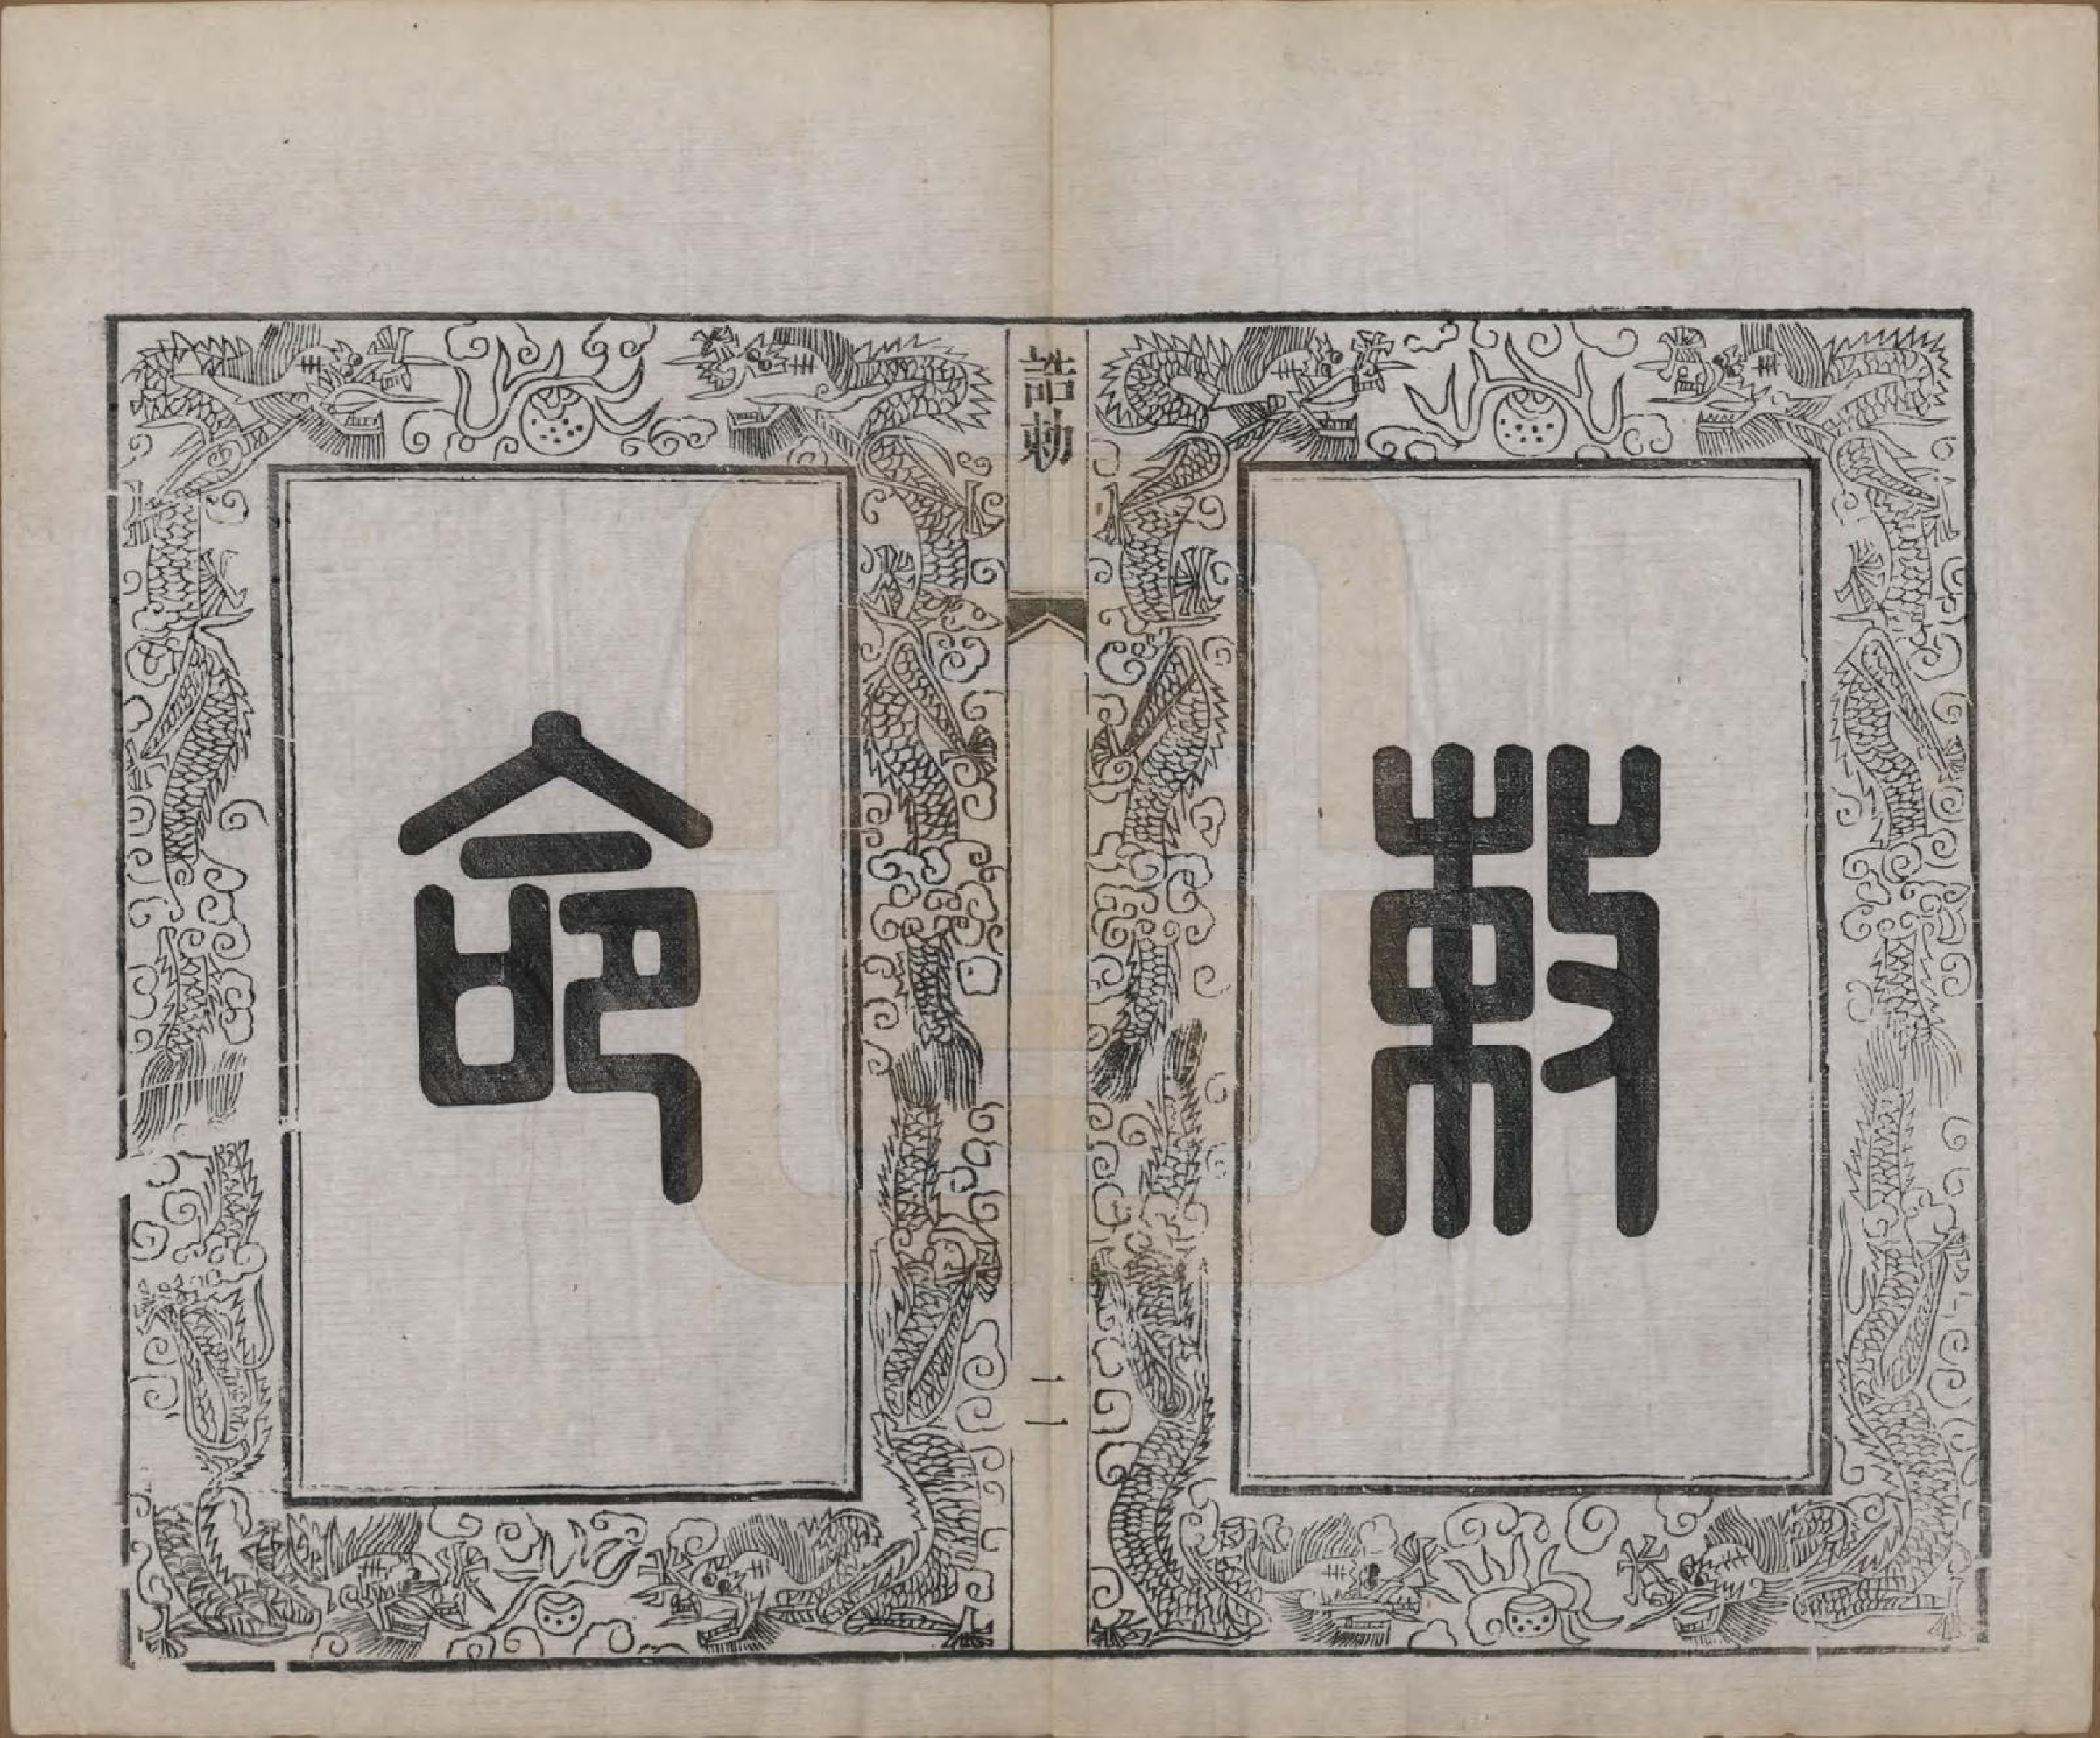 敕
誥勅
二
命